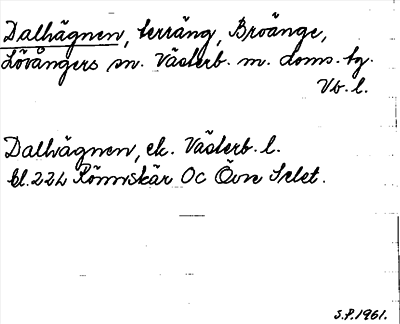 Dalhägnen, terräng, Broänge,
Lövångers sn. Västerb. m. doms. tg.
Vb. l.
Dalhägnen, ek. Västerb. l.
bl. 22L Rönnskär Oc Övre Selet.
S.P. 1961.